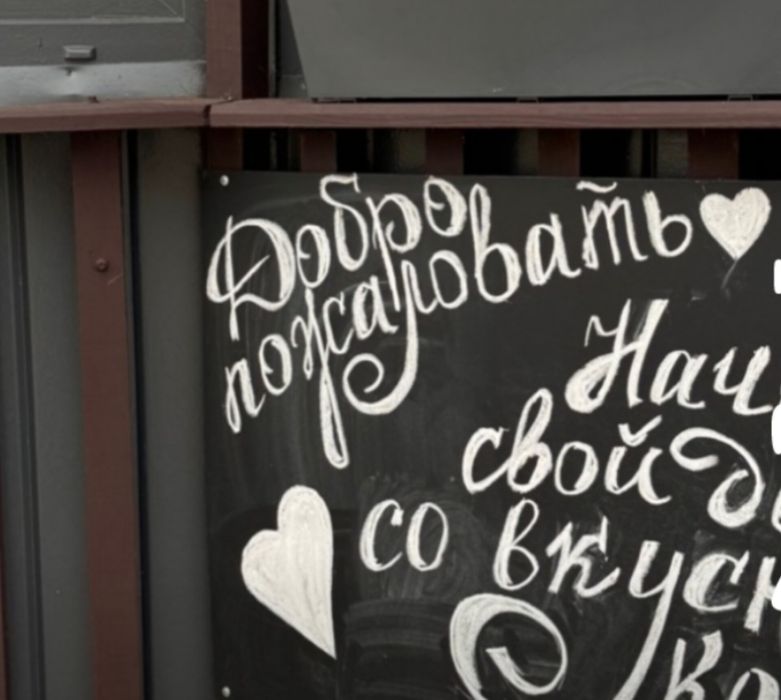 Добро
пожаловать
Нач
свой д
со вкусн
ко